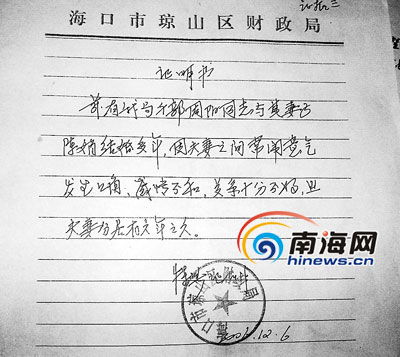 证据三
海口市琼山区财政局
证明书
兹有我局干部周如同志与其妻
陈婧结婚多年，因夫妻之间常闹意气
发生口角、感情不和，关系十分不好，且
夫妻分居有六年之久。
南海网
hinews.cn
海口市琼山区财政局
2006.12.6